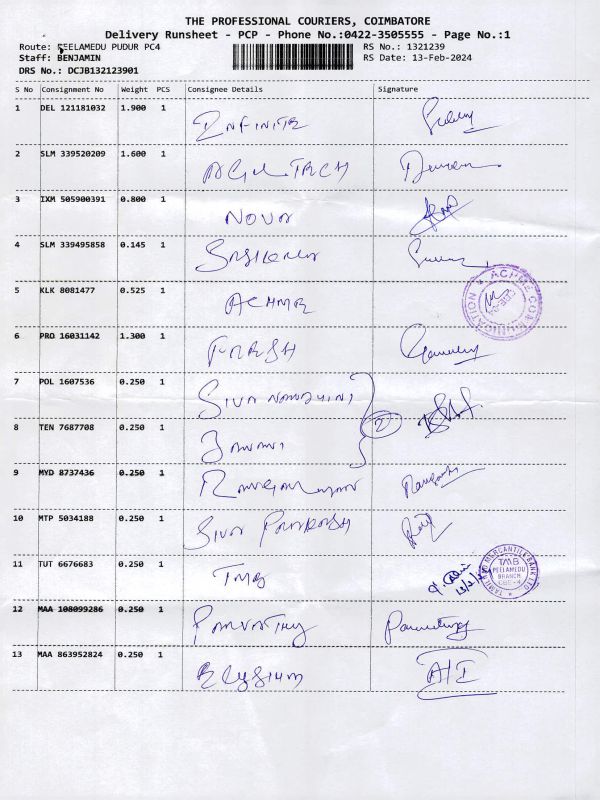 THE PROFESSIONAL COURIERS, COIMBATORE
Delivery Runsheet - PCP - Phone No.:0422-3505555 - Page No.:1
Route: PEELAMEDU PUDUR PC4 RS No.: 1321239
Staff: BENJAMIN RS Date: 13-Feb-2024
DRS No.: DCJB132123901
S No Consignment No Weight PCS Consignee Details Signature
1 DEL 121181032 1.900 1 INFINITE
2 SLM 339520209 1.600 1
3 IXM 505900391 0.800 1 NOVA
4 SLM 339495858 0.145 1
5 KLK 8081477 0.525 1 ACHME
6 PRO 16031142 1.300 1 FRESH
7 POL 1607536 0.250 1 SIVA
8 TEN 7687708 0.250 1 2
9 MYD 8737436 0.250 1
10 MTP 5034188 0.250 1 SIVA PRAKASH
11 TUT 6676683 0.250 1 TMB 13/2/24
TAMILNAD MERCANTILE BANK LTD
TMB
PEELAMEDU
BRANCH
CBE-4
12 MAA 108099286 0.250 1 PARVATHY
13 MAA 863952824 0.250 1 Elysium